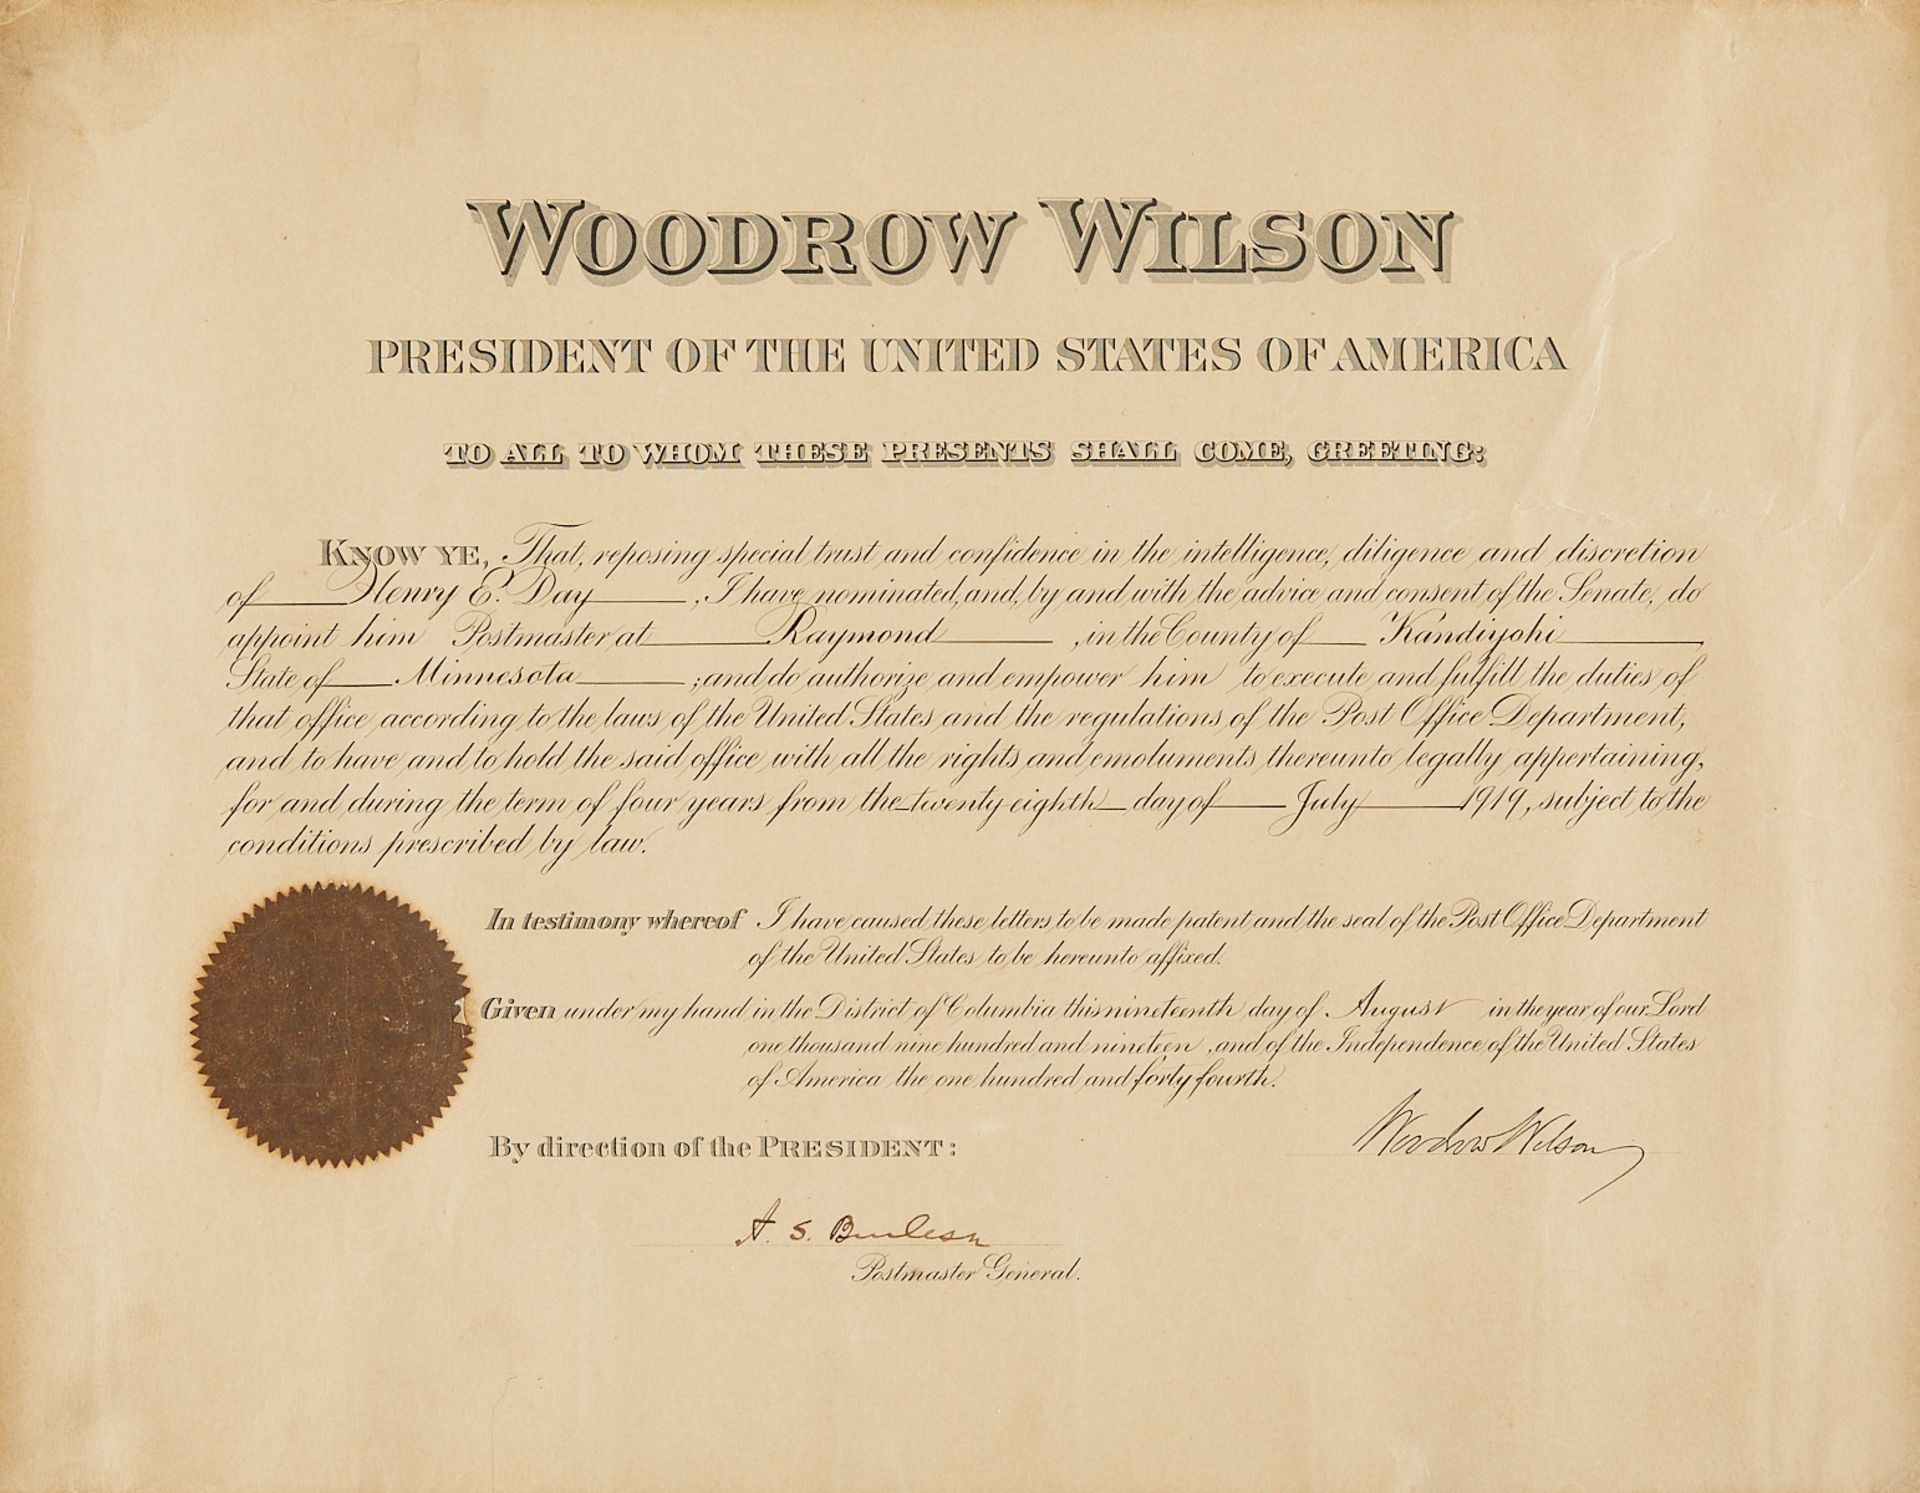 WOODROW WILSON
PRESIDENT OF THE UNITED STATES OF AMERICA
TO ALL TO WHOM THESE PRESENTS SHALL COME, GREETING:
KNOW YE, That, reposing special trust and confidence in the intelligence, diligence and discretion
of Henry E. Day, I have nominated, and, by and with the advice and consent of the Senate, do
appoint him Postmaster at Raymond, in the County of Kandiyohi
State of Minnesota; and do authorize and empower him to execute and fulfill the duties of
that office according to the laws of the United States and the regulations of the Post Office Department,
and to have and to hold the said office with all the rights and emoluments thereunto legally appertaining,
for and during the term of four years from the twenty-eighth day of July 1919, subject to the
conditions prescribed by law.
In testimony whereof I have caused these letters to be made patent and the seal of the Post Office Department
of the United States to be hereunto affixed.
Given under my hand in the District of Columbia this nineteenth day of August in the year of our Lord
one thousand nine hundred and nineteen, and of the Independence of the United States
of America the one hundred and forty fourth.
Woodrow Wilson
By direction of the PRESIDENT:
A. S. Burleson
Postmaster General.